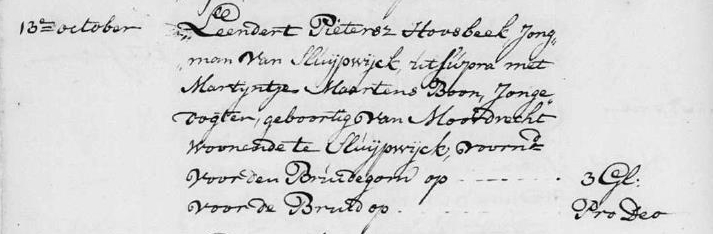 13de october Leendert Pietersz Hovsbeek Jong„
„man van Sluijpwijck, ut supra met
Martijntje Maartens Boon, Jonge„
dogter, geboortig van Moordrecht
woonende te Sluijpwijck, voornt
voor den Bruidegom op - - - - - - 3 Gl:
voor de Bruid op - - - - - - Pro Deo